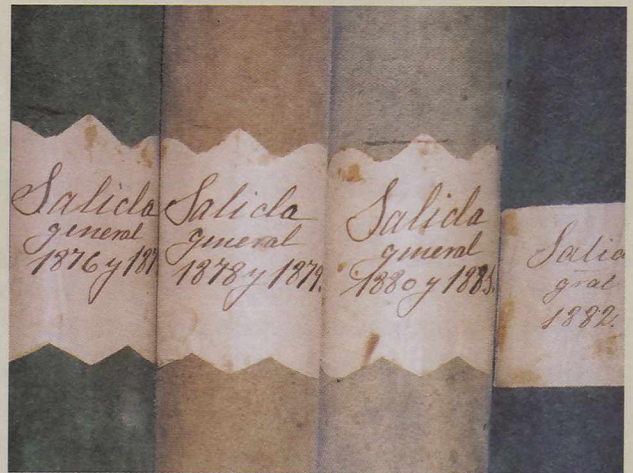 Salida
general
1876 y 187
Salida
general
1878 y 1879.
Salida
general
1880 y
Salid
gral
1882.